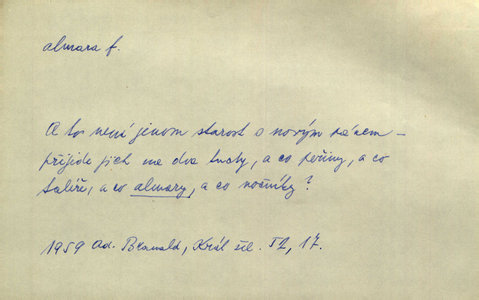 almara f.
A to není jenom starost s novým pánem –
přijede jich na dva tucty, a co peřiny, a co
talíře, a co almary, a co nočníky?
1959 Ad. Branald, Král žel. I2, 17.